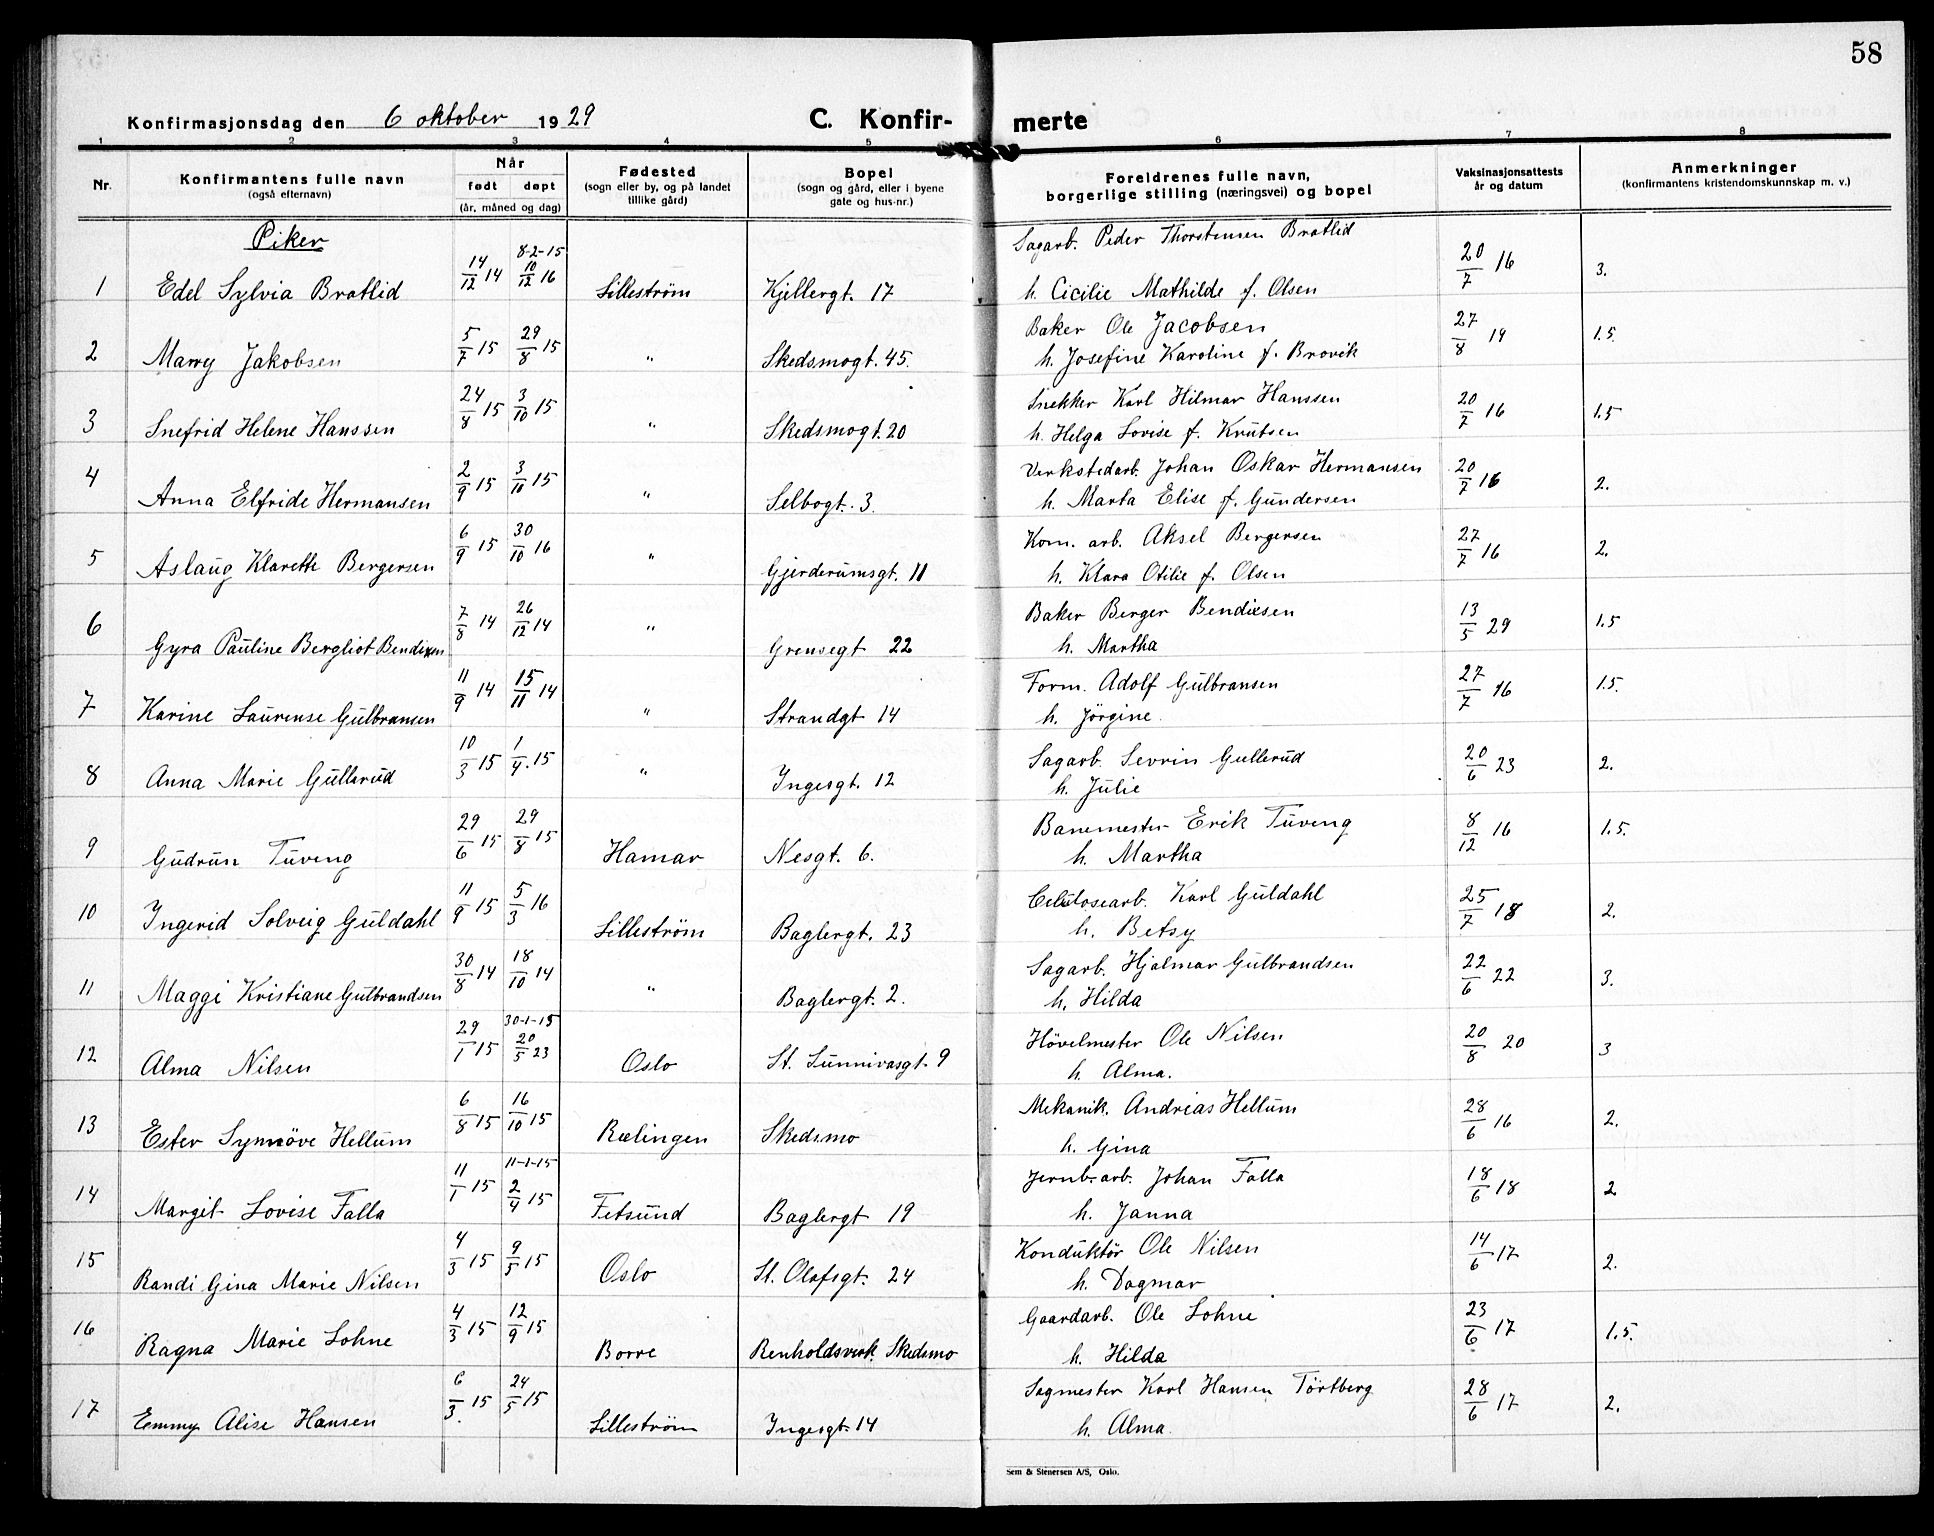 58
Konfirmasjonsdag den 6 oktober 1929 C. Konfir- merte
1 2 3 4 5 6 7 8
Nr. Konfirmantens fulle navn (også efternavn) Når født døpt (år, måned og dag) Fødested (sogn eller by, og på landet tillike gård) Bopel (sogn og gård, eller i byene gate og hus-nr.) Foreldrenes fulle navn, borgerlige stilling (næringsvei) og bopel Vaksinasjonsattests år og datum Anmerkninger (konfirmantens kristendomskunnskap m. v.)
Piker
1 Edel Sylvia Bratlid 14/12 14 8-2-15 10/12 16 Lilleström Kjellergt. 17 Sagarb. Peder Thorstensen Bratlid h. Cicilie Mathilde f. Olsen 20/7 16 3.
2 Marry Jakobsen 5/7 15 29/8 15 " Skedsmogt. 45. Baker Ole Jacobsen h. Josefine Karoline f. Brovik 27/8 19 1.5.
3 Snefrid Helene Hanssen 24/8 15 3/10 15 " Skedsmogt. 20 Snekker Karl Hilmar Hanssen h. Helga Lovise f. Knutsen 20/7 16 1.5
4 Anna Elfride Hermansen 2/9 15 3/10 15 " Selbogt. 3. Verkstedarb. Johan Oskar Hermansen h. Marta Elise f. Gundersen 20/7 16 2.
5 Aslaug Klarette Bergersen 6/9 15 30/10 16 " Gjerderumsgt. 11 Kom. arb. Aksel Bergersen h. Klara Otilie f. Olsen 27/7 16 2.
6 Gyra Pauline Bergliot Bendixen 7/8 14 26/12 14 " Grensegt 22 Baker Berger Bendixsen h. Martha 13/5 29 1.5
7 Karine Laurense Gulbransen 11/9 14 15/11 14 " Strandgt 14 Form. Adolf Gulbransen h. Jörgine. 27/7 16 1.5.
8 Anna Marie Gullerud 10/3 15 1/4. 15 " Ingesgt. 12 Sagarb. Sevrin Gullerud h. Julie 20/6 23 2.
9 Gudrun Tuveng 29/6 15 29/8 15 Hamar Nesgt. 6. Banemester Erik Tuveng h. Martha 8/12 16 1.5.
10 Ingerid Solveig Guldahl 11/9 15 5/3 16 Lilleström Baglergt. 23 Celutosearb. Karl Guldahl h. Betsy 25/7 18 2.
11 Maggi Kristiane Gulbrandsen 30/8 14 18/10 14 " Baglergt. 2. Sagarb. Hjalmar Gulbrandsen h. Hilda 22/6 22 3.
12 Alma Nilsen 29/1 15 30-1-15 20/5 23 Oslo St. Sunnivasgt. 9 Hövelmester Ole Nilsen h. Alma. 20/8 20 3
13 Ester Synnöve Hellum 6/8 15 16/10 15 Rælingen Skedsmo Mekanik. Andreas Hellum h. Gina 28/6 16 2.
14 Margit Lovise Falla 11/1 15 11-1-15 2/4 15 Fetsund Baglergt 19 Jernb.arb. Johan Falla h. Janna 18/6 18 2
15 Randi Gina Marie Nilsen 4/3 15 9/5 15 Oslo St. Olafsgt. 24 Konduktör Ole Nilsen h. Dagmar 14/6 17 2.
16 Ragna Marie Lohne 4/3 15 12/9 15 Borre Renholdsverk. Skedsmo Gaardarb. Ole Lohne h. Hilda 23/6 17 1.5.
17 Emmy Alise Hansen 6/3. 15 24/5 15 Lilleström Ingesgt. 14 Sagmester Karl Hansen Törtberg h. Alma. 28/6 17 2.
Sem & Stenersen A/S, Oslo.